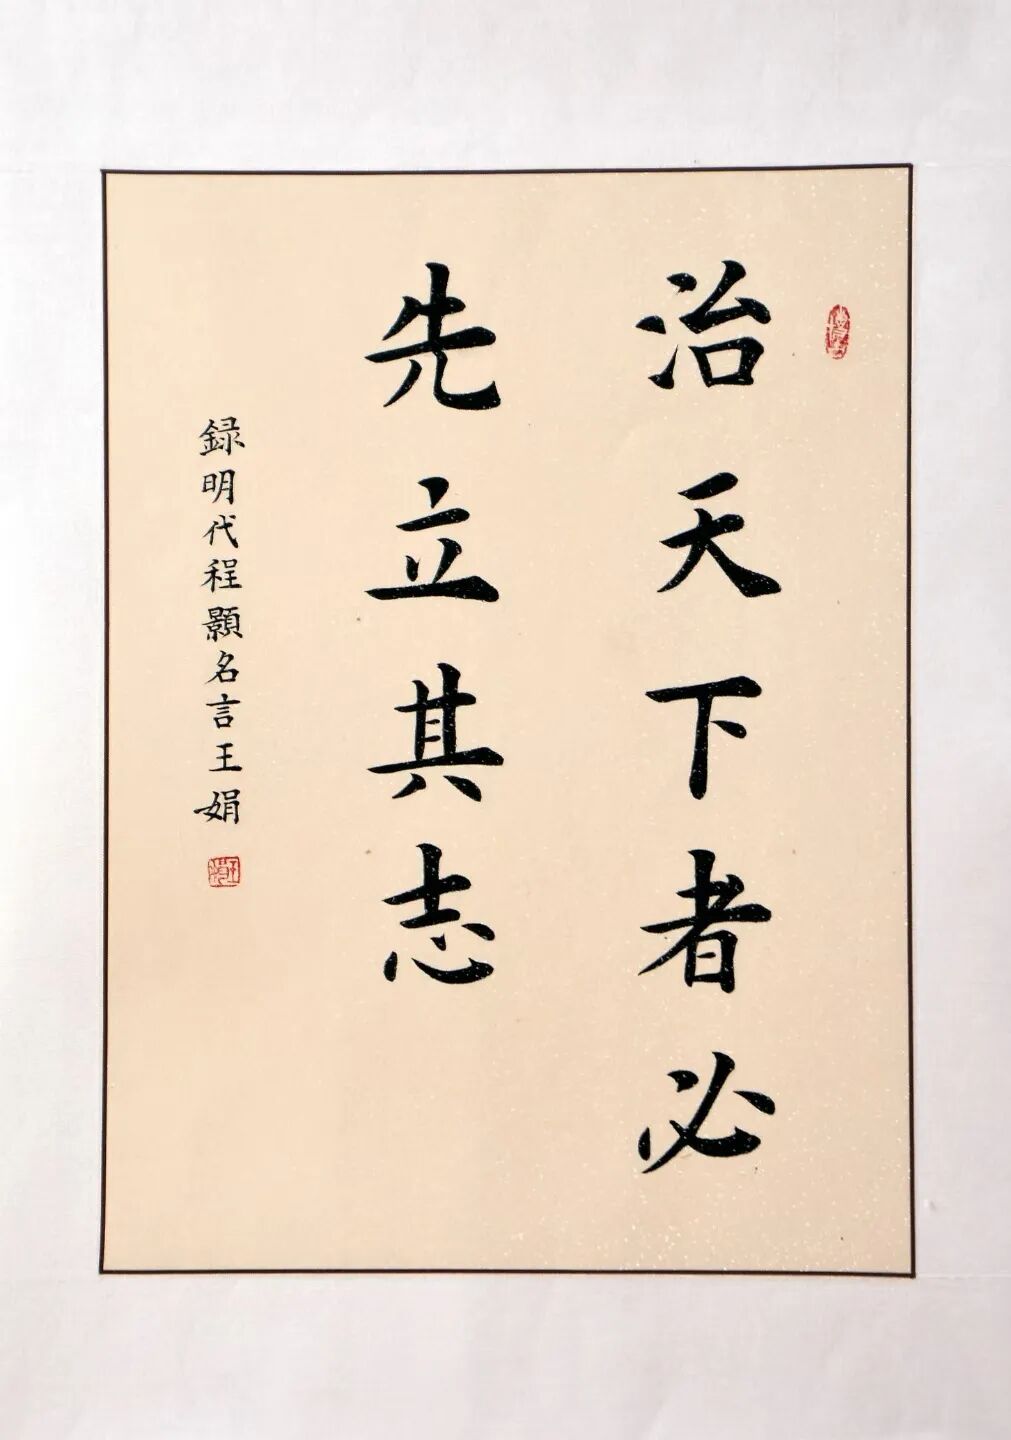 治天下者必
先立其志
録明代程顥名言王娟
王娟